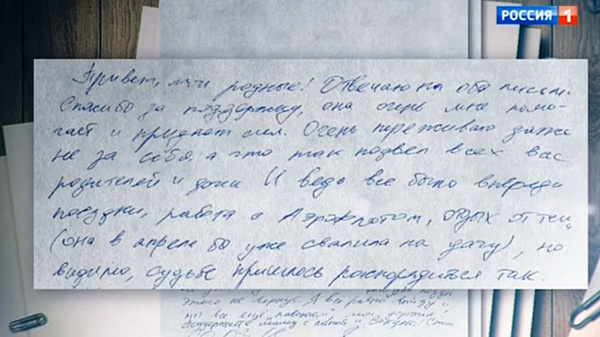 РОССИЯ 1
Привет, мои родные! Отвечаю на оба письма.
Спасибо за поддержку, она очень мне помо-
гает и придает сил. Очень переживаю даже
не за себя, а что так подвел всех вас
родителей и дочи И ведь все было впереди
поездки, работа с Аэрофлотом, отдых от
(она в апреле бы уже свалила на дачу), но
видимо, судьбе пришлось распорядится так.
Этого не вернуть. А все равно
мы все еще